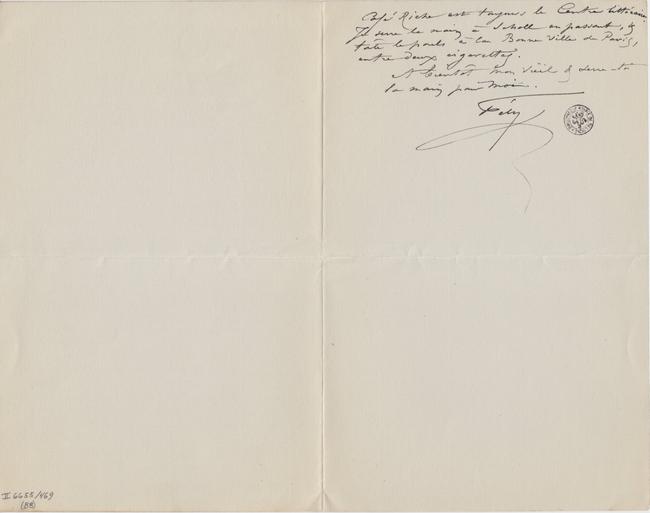 Café Riche est toujours le Centre littéraire
Je serre la main à Scholl en passant, &
tâte le pouls à la Bonne Ville de Paris,
entre deux cigarettes.
A bientôt mon vieil & serre-toi
la main pour moi.
Fély
II 6655/469
(88)